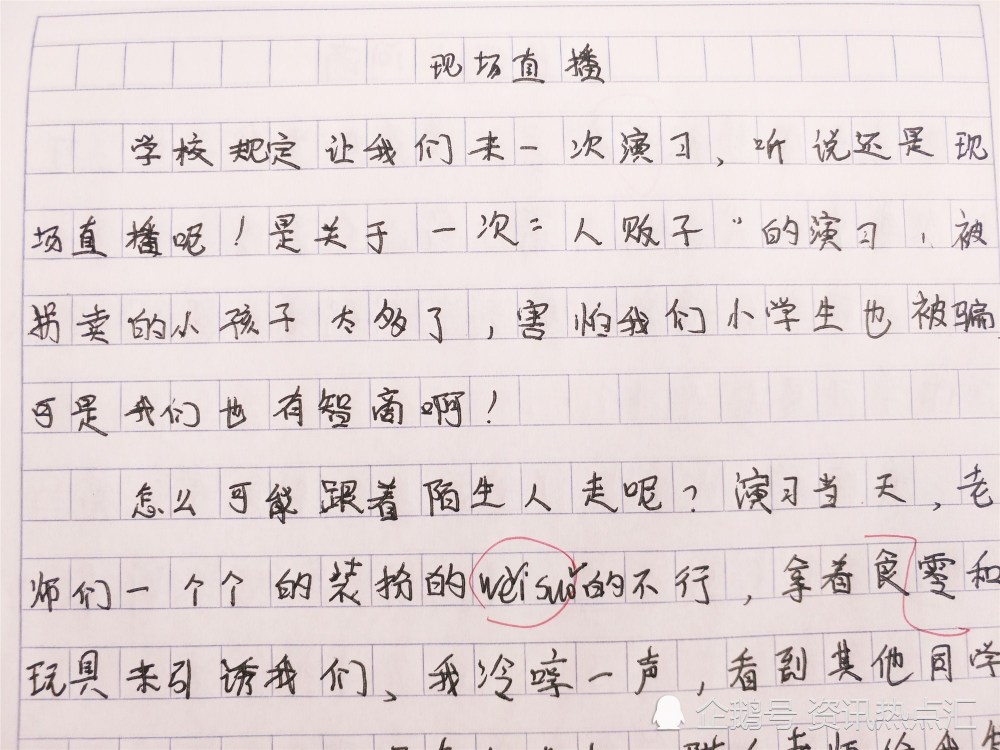 现场直播
学校规定让我们来一次演习，听说还是现
场直播呢！是关于一次"人贩子"的演习，被
拐卖的小孩子太多了，害怕我们小学生也被骗，
可是我们也有智商啊！
怎么可能跟着陌生人走呢？演习当天，老
师们一个个的装扮的wěi suǒ的不行，拿着食零和
玩具来引诱我们、我冷哼一声，看到其他同学
企鹅号 资讯热点汇